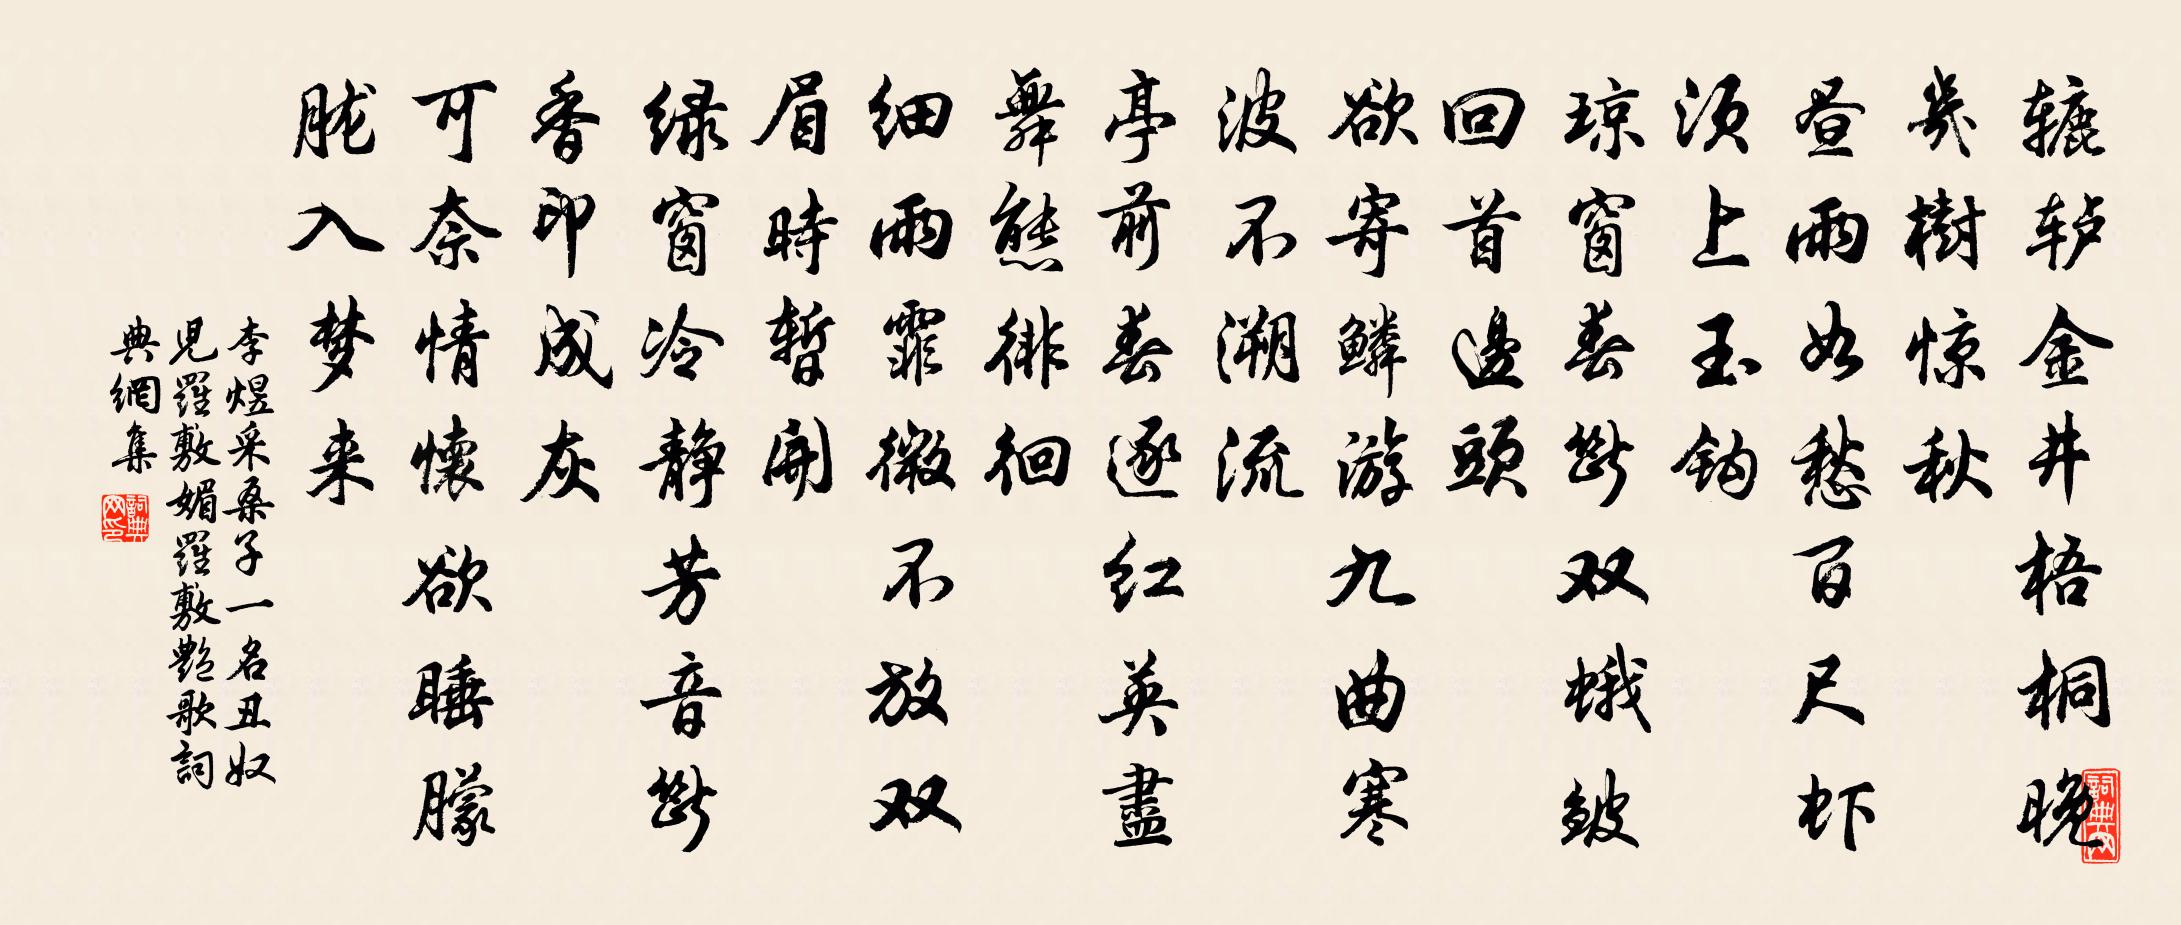 辘轳金井梧桐晚
幾樹惊秋
昼雨如愁百尺虾
须上玉钩
琼窗春断双蛾皱
回首邊頭
欲寄鳞游九曲寒
波不溯流
亭前春逐红英盡
舞態徘徊
细雨霏微不放双
眉時暂開
绿窗冷静芳音断
香印成灰
可奈情懷欲睡朦
胧入梦来
李煜采桑子一名丑奴
児羅敷媚羅敷艷歌詞
典網集
詞典网
詞典网印